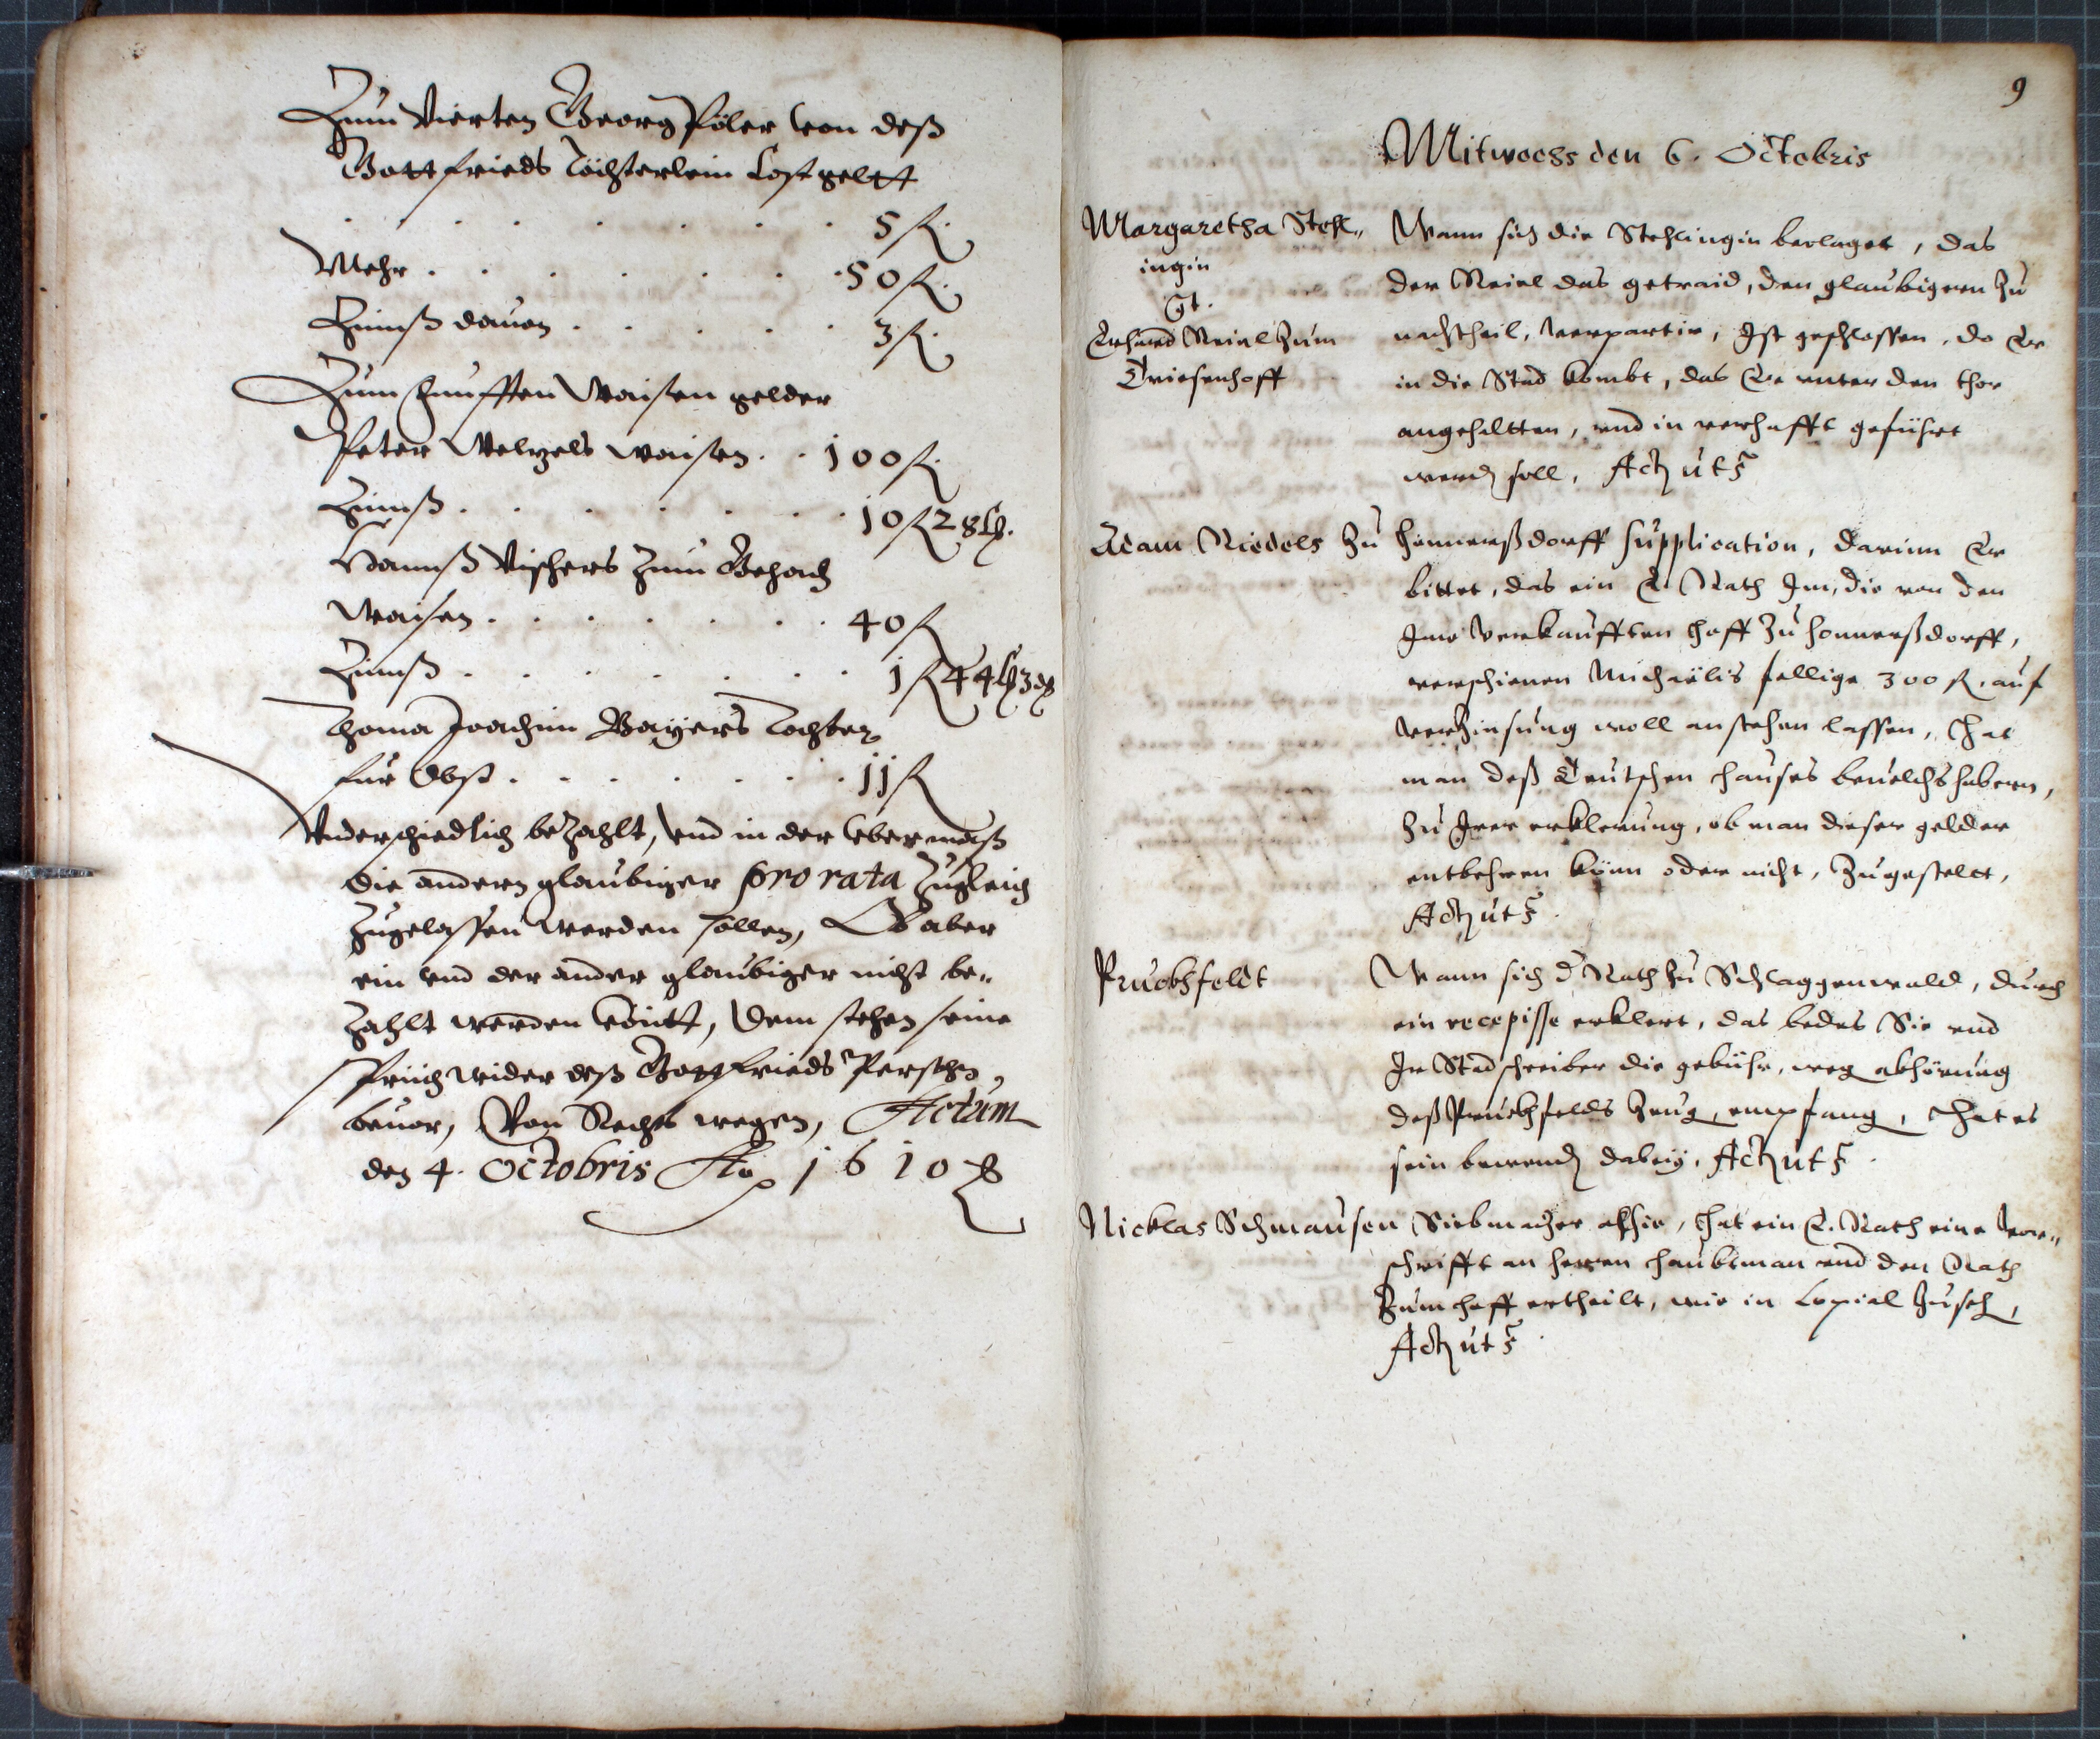 Zum Vierten Georg Föler von deß
Gottfrieds Töchterlein Costgeltt
. . . . . . 5 fl.
Mehr . . . . . . 50 fl.
Zinnß dauon . . . . . 3 fl.
Zum Funfften Waisen gelder
Peter Welzels waisen . . 100 fl.
Zinnß . . . . . . 10 fl 28 kr.
Hannß Vischers zum Gehaag
Waisen . . . . . . 40 fl
Zinnß . . . . . . 1 fl 44 kr 3 d
Thoma Joachim Bayers Tochter
für Obst . . . . . . 11 fl
Vnderschiedlich bezahlt, vnd in der vbermaß
die andern glaubiger pro rata zugleich
zugelassen werden sollen, Ob aber
ein vnd der ander glaubiger nicht be„
zahlt werden köntt, dem stehen seine
sprüch wider deß Gottfrieds Person
beuor, Von Rechts wegen, Actum
den 4. Octobris Ao 1610
9
Mitwochs den 6. Octobris
Margaretha Stehl„
ingin
Ct.
Erhard Meinl zum
Triesenhoff
Wann sich die Stehlingin beclaget, das
der Meinl das getraid, den glaubigern zu
nachtheil, verpartir, Ist geschlossen, do Er
in die Stad kombt, das Er unter den thor
angehaltten, und in verhafft geführt
werdn soll, Actum ut s
Adam Riedels zu honnerßdorff supplication, darinn Er
bittet, das ein E. Rath Im, die von den
Ime verkaufften hoff zu honnerßdorff,
verschienen Michaelis fellige 300 fl. auf
verzinsung woll anstehen lassen, Hat
man deß Teutschen hauses beuelchshabern,
zu Irer erklerung, ob man dieser gelder
entbehren könn oder nicht, zugestellt,
Actum ut s
Pruckhfeldt
Wann sich d Rath zu Schlaggenwald, durch
ein recepisse erklert, das bedes Sie und
Ir Stadschreiber die gebühr, weg abhörung
deß Pruckhfelds zeug, empfang, Hat es
sein bewendn dabey, Actum ut s
Nicklas Schmausen Siebmacher alhie, Hat ein E. Rath eine vor„
schrifft an herrn haubtman und den Rath
zum hoff ertheilt, wie in Copial zusehn,
Actum ut s